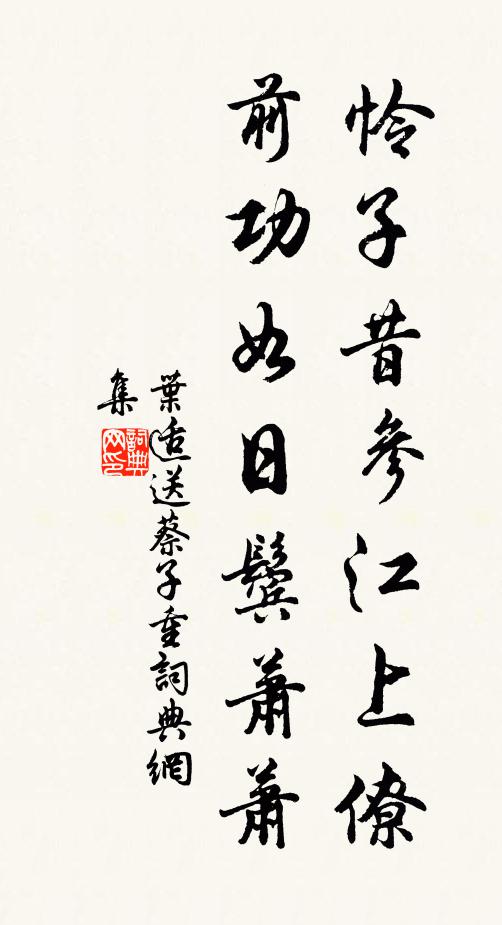 怜子昔參江上僚
前功如日鬓蕭蕭
葉适送蔡子重詞典網
集
詞典网印